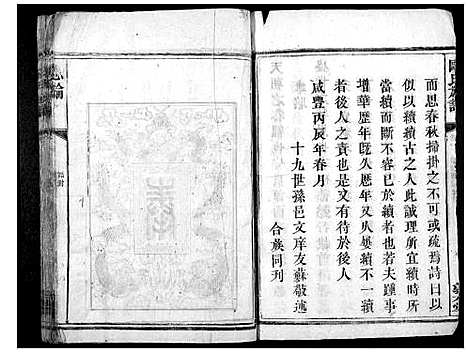 而思春秋掃掛之不可或疏焉詩曰以
似以續續古之人此誠理所宜續時所
當續而斷不容已於續者也若夫踵事
增華歷年既久厯年又久屡續不一續
者後人之責也是又有待於後人
咸豐丙辰年春月
十九世孫邑文庠友蘇敬述
合族同刋